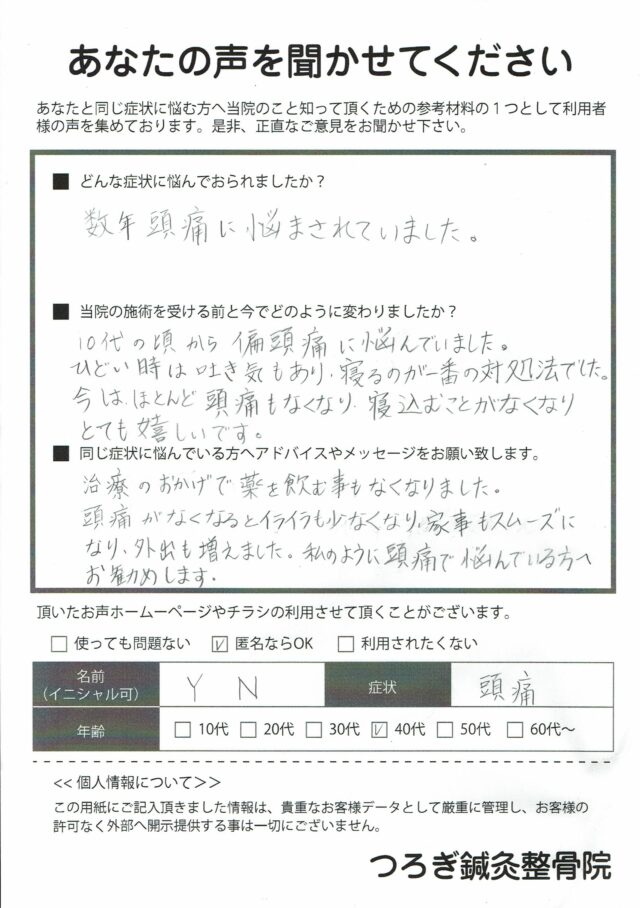 あなたの声を聞かせてください
あなたと同じ症状に悩む方へ当院のこと知って頂くための参考材料の1つとして利用者
様の声を集めております。是非、正直なご意見をお聞かせ下さい。
■ どんな症状に悩んでおられましたか？
数年頭痛に悩まされていました。
■ 当院の施術を受ける前と今でどのように変わりましたか？
10代の頃から偏頭痛に悩んでいました。
ひどい時は吐き気もあり、寝るのが一番の対処法でした。
今は、ほとんど頭痛もなくなり、寝込むことがなくなり
とても嬉しいです。
■ 同じ症状に悩んでいる方へアドバイスやメッセージをお願い致します。
治療のおかげで薬を飲む事もなくなりました。
頭痛がなくなるとイライラも少なくなり、家事もスムーズに
なり、外出も増えました。私のように頭痛で悩んでいる方へ
お勧めします。
頂いたお声ホームーページやチラシの利用させて頂くことがございます。
□ 使っても問題ない ☑ 匿名ならOK □ 利用されたくない
名前
(イニシャル可) Y N 症状 頭痛
年齢 □ 10代 □ 20代 □ 30代 ☑ 40代 □ 50代 □ 60代〜
<< 個人情報について>>
この用紙にご記入頂きました情報は、貴重なお客様データとして厳重に管理し、お客様の
許可なく外部へ開示提供する事は一切にございません。
つろぎ鍼灸整骨院